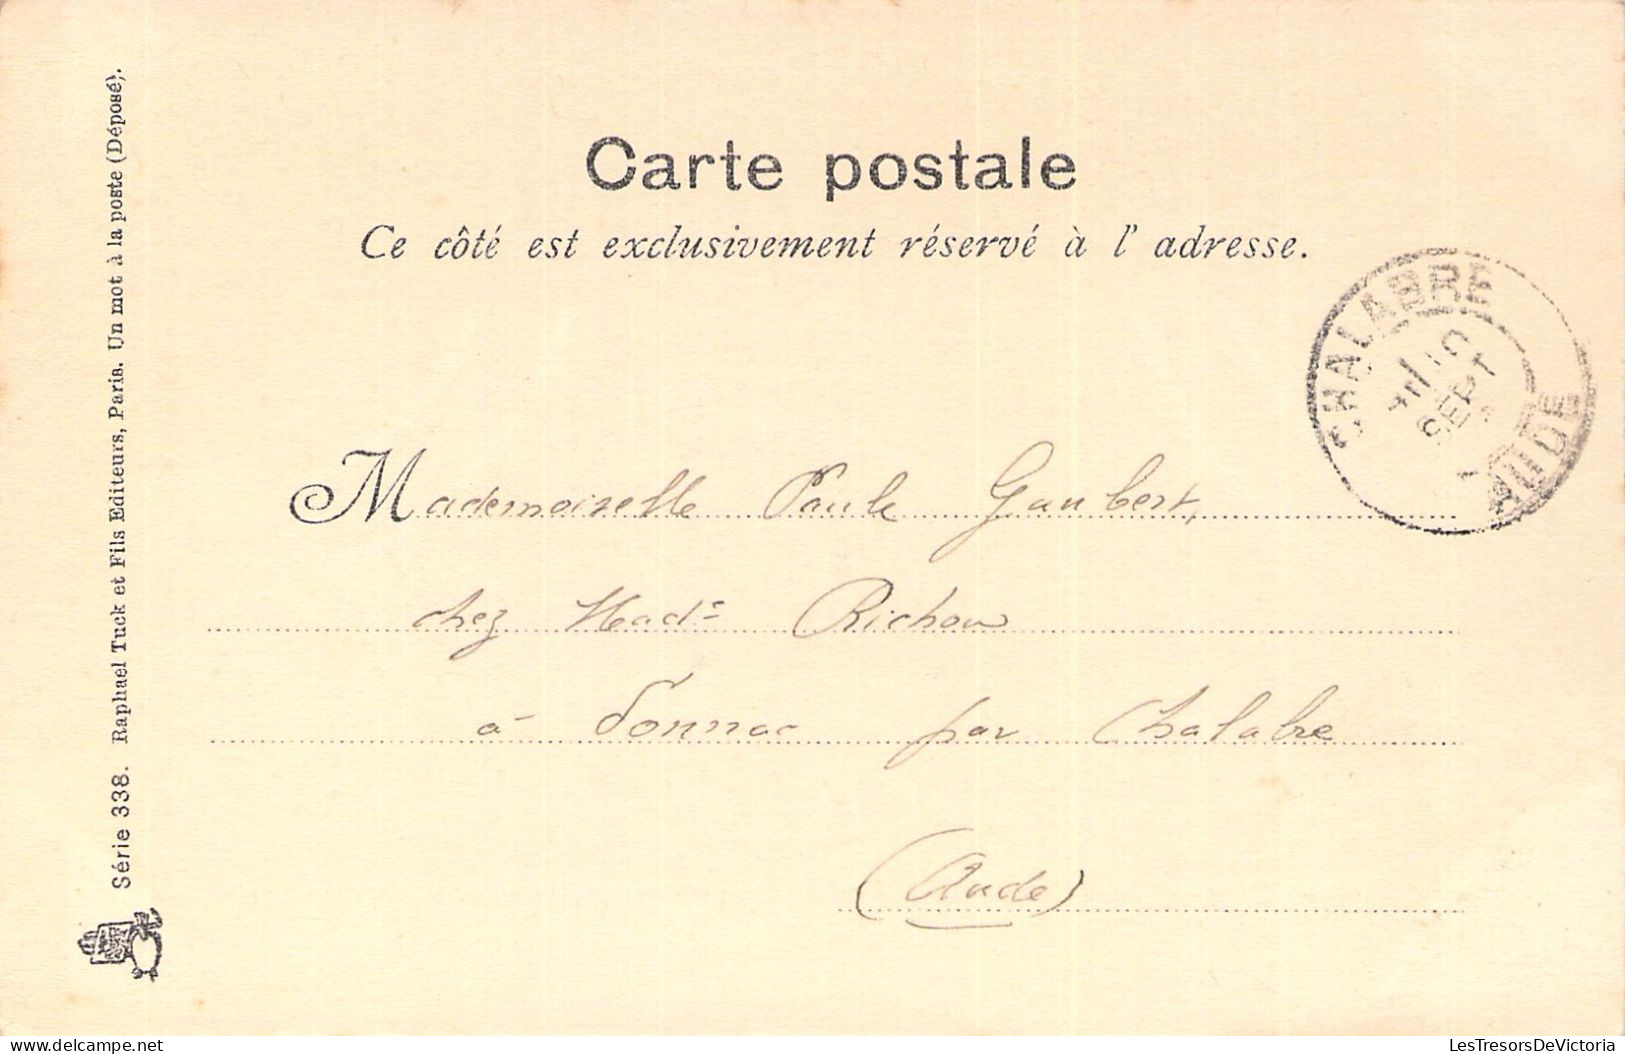 Carte postale
Ce côté est exclusivement réservé à l' adresse.
CHALABRE
10
SEPT
AUDE
Mademoiselle Paule Gaubert,
chez Made Richou
à Sonnac par Chalabre
(Aude)
Série 338. Raphael Tuck et Fils Editeurs, Paris. Un mot à la poste (Déposé).
LesTresorsDeVictoria